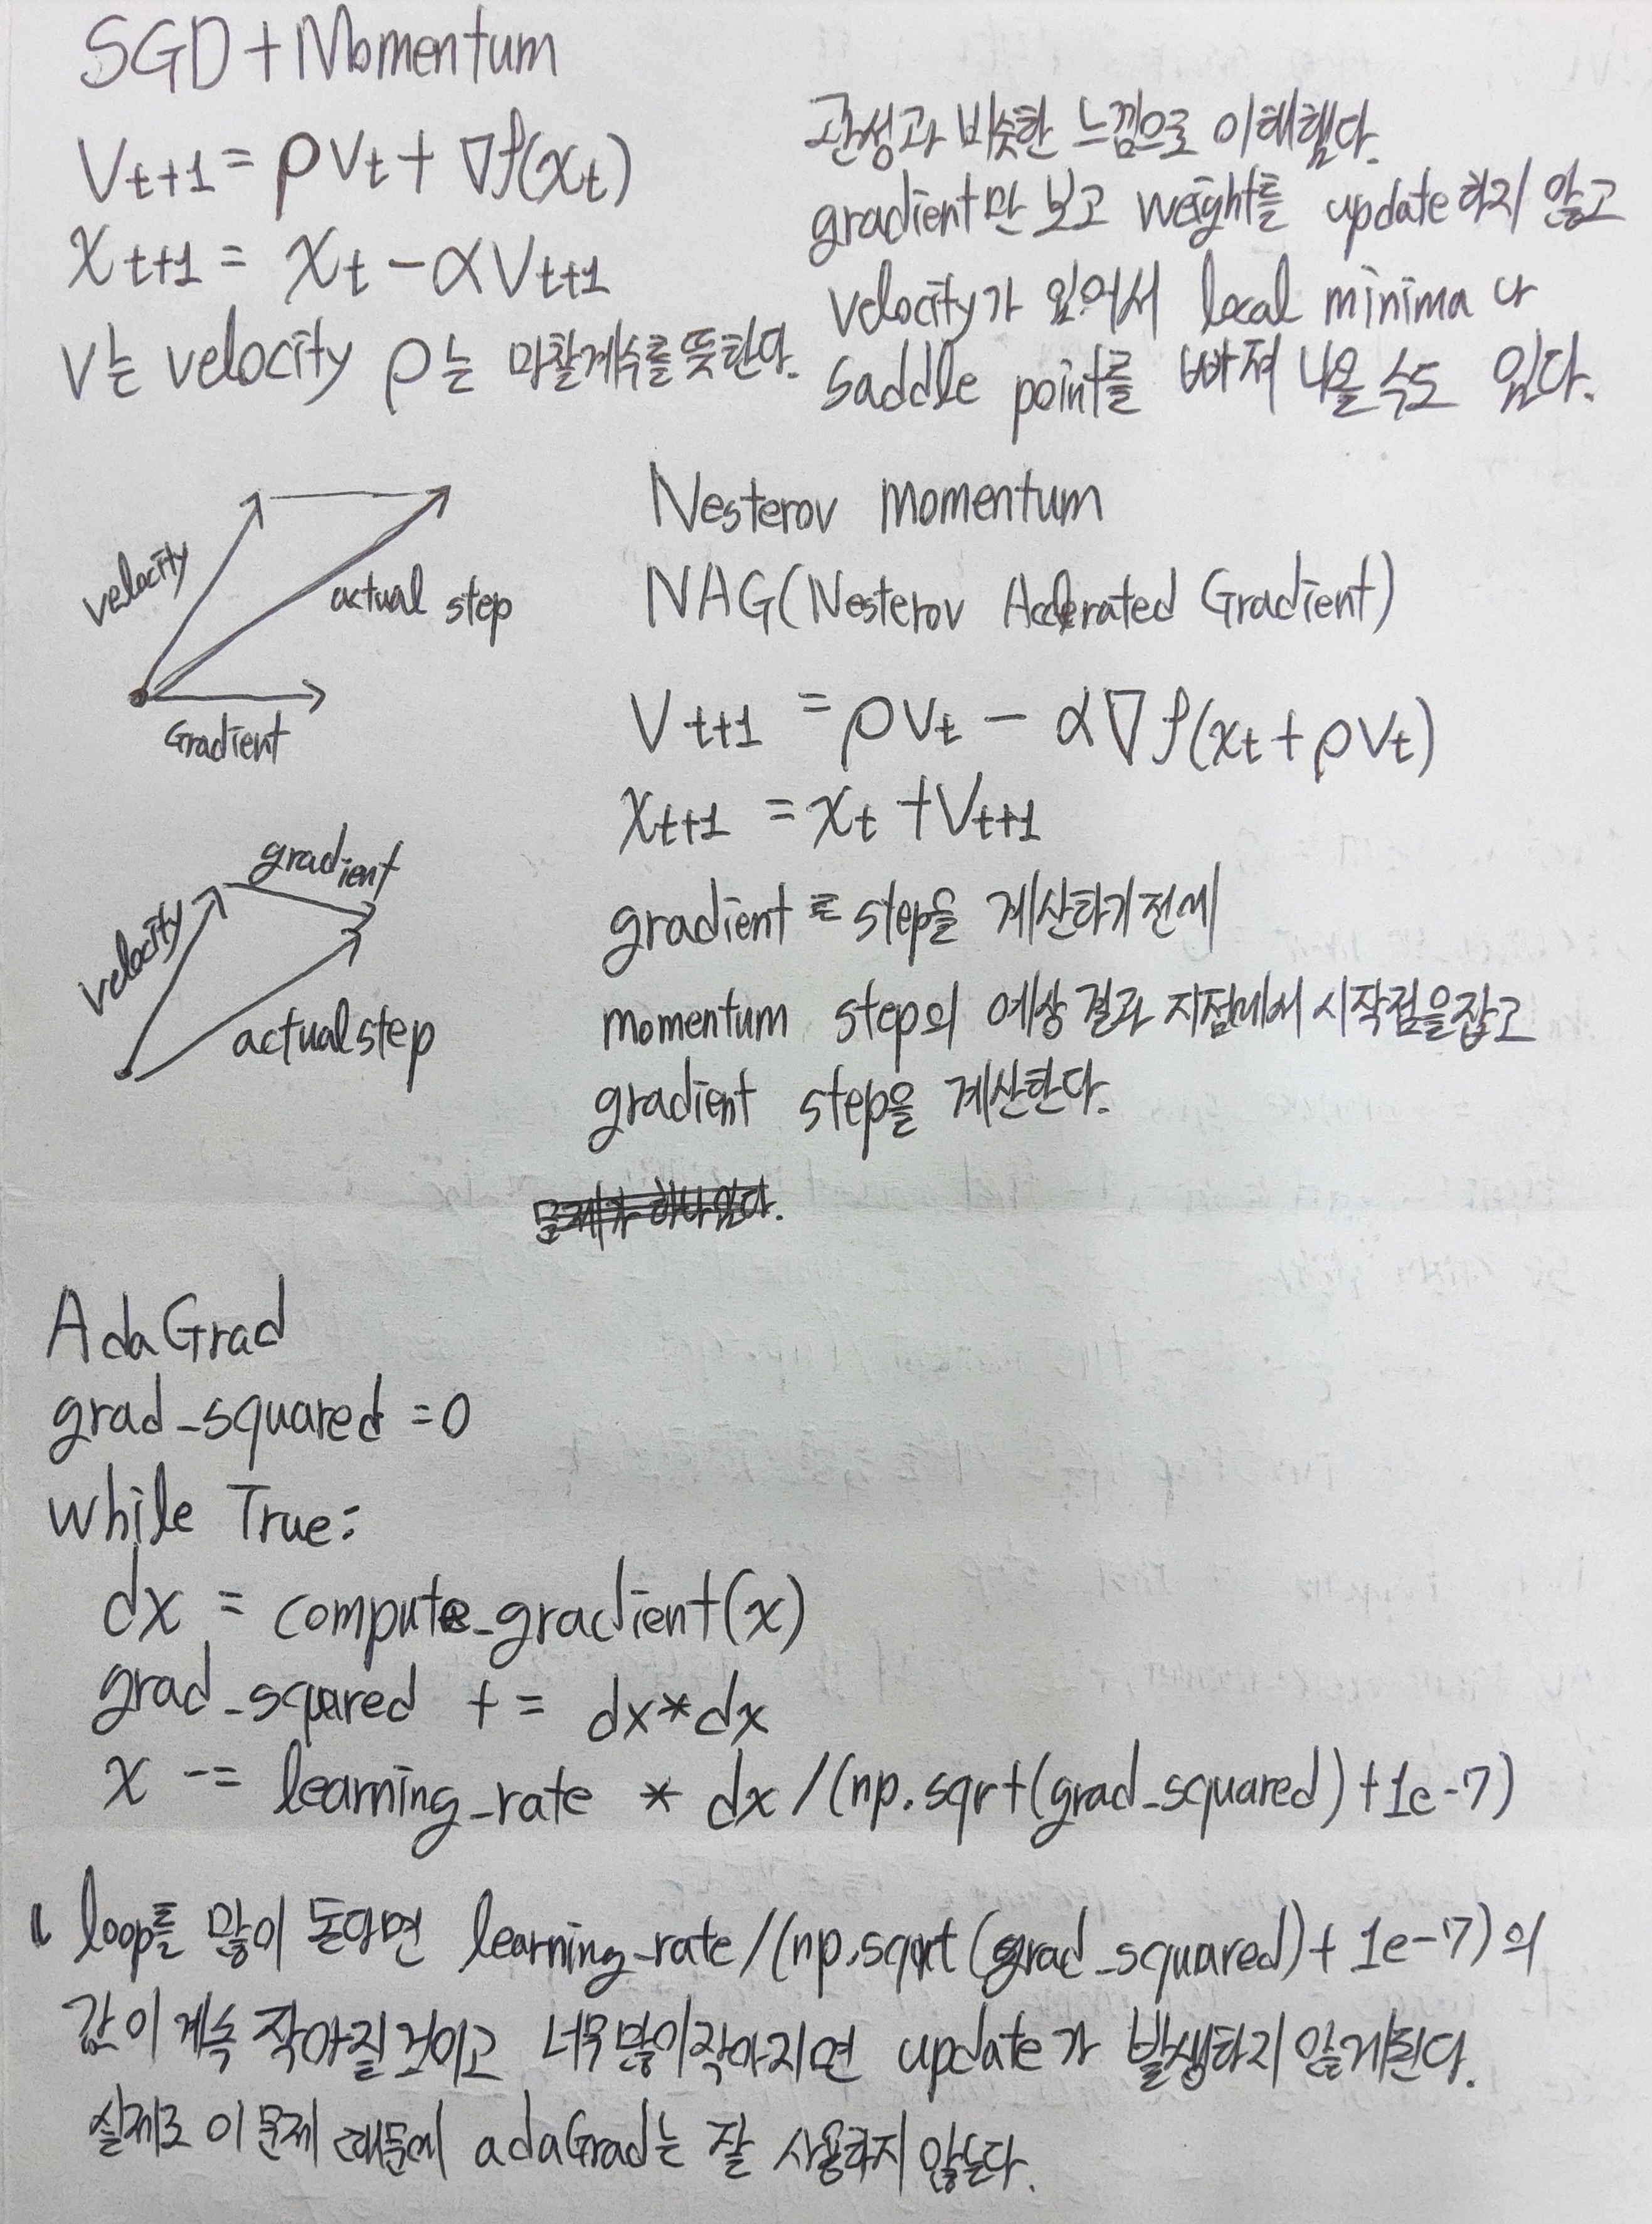 SGD + Momentum
V_{t+1} = ρV_t + ∇f(x_t)
x_{t+1} = x_t - αV_{t+1}
V는 velocity ρ는 마찰계수를 뜻한다.
관성과 비슷한 느낌으로 이해했다.
gradient만 보고 weight를 update하지 않고
velocity가 있어서 local minima나
saddle point를 빠져 나올 수도 있다.
velocity
actual step
Gradient
Nesterov Momentum
NAG(Nesterov Accelerated Gradient)
V_{t+1} = ρV_t - α∇f(x_t + ρV_t)
x_{t+1} = x_t + V_{t+1}
gradient step을 계산하기 전에
momentum step의 예상 결과 지점에서 시작점을 잡고
gradient step을 계산한다.
velocity
gradient
actual step
문제가 하나 있다.
AdaGrad
grad_squared = 0
while True:
dx = compute_gradient(x)
grad_squared += dx*dx
x -= learning_rate * dx /(np.sqrt(grad_squared)+1e-7)
loop를 많이 돈다면 learning_rate/(np.sqrt(grad_squared)+1e-7)의
값이 계속 작아질 것이고 너무 많이 작아지면 update가 발생하지 않게된다.
실제로 이 문제 때문에 adaGrad는 잘 사용하지 않는다.